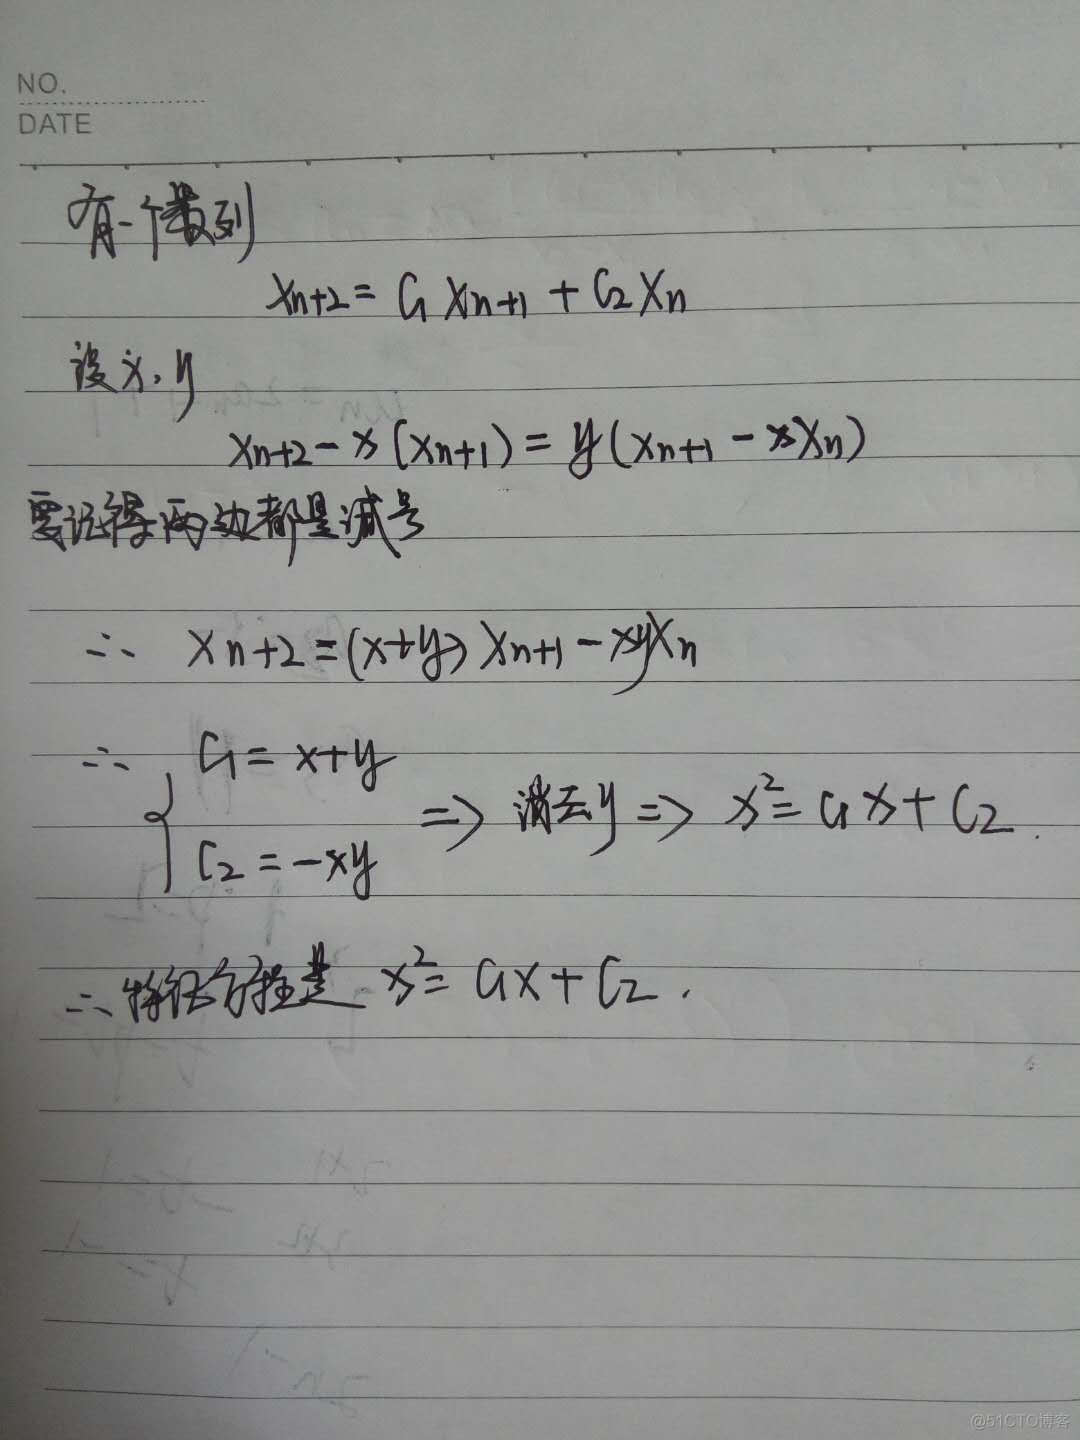 NO.
DATE
有一个数列
Xn+2 = C1 Xn+1 + C2 Xn
设 x, y
Xn+2 - x (Xn+1) = y (Xn+1 - x Xn)
要记得两边都是减号
∴ Xn+2 = (x+y) Xn+1 - xy Xn
∴ { C1 = x+y
C2 = -xy
=> 消去y => x² = C1 x + C2 .
∴ 特征方程是 x² = C1 x + C2 .
@51CTO博客